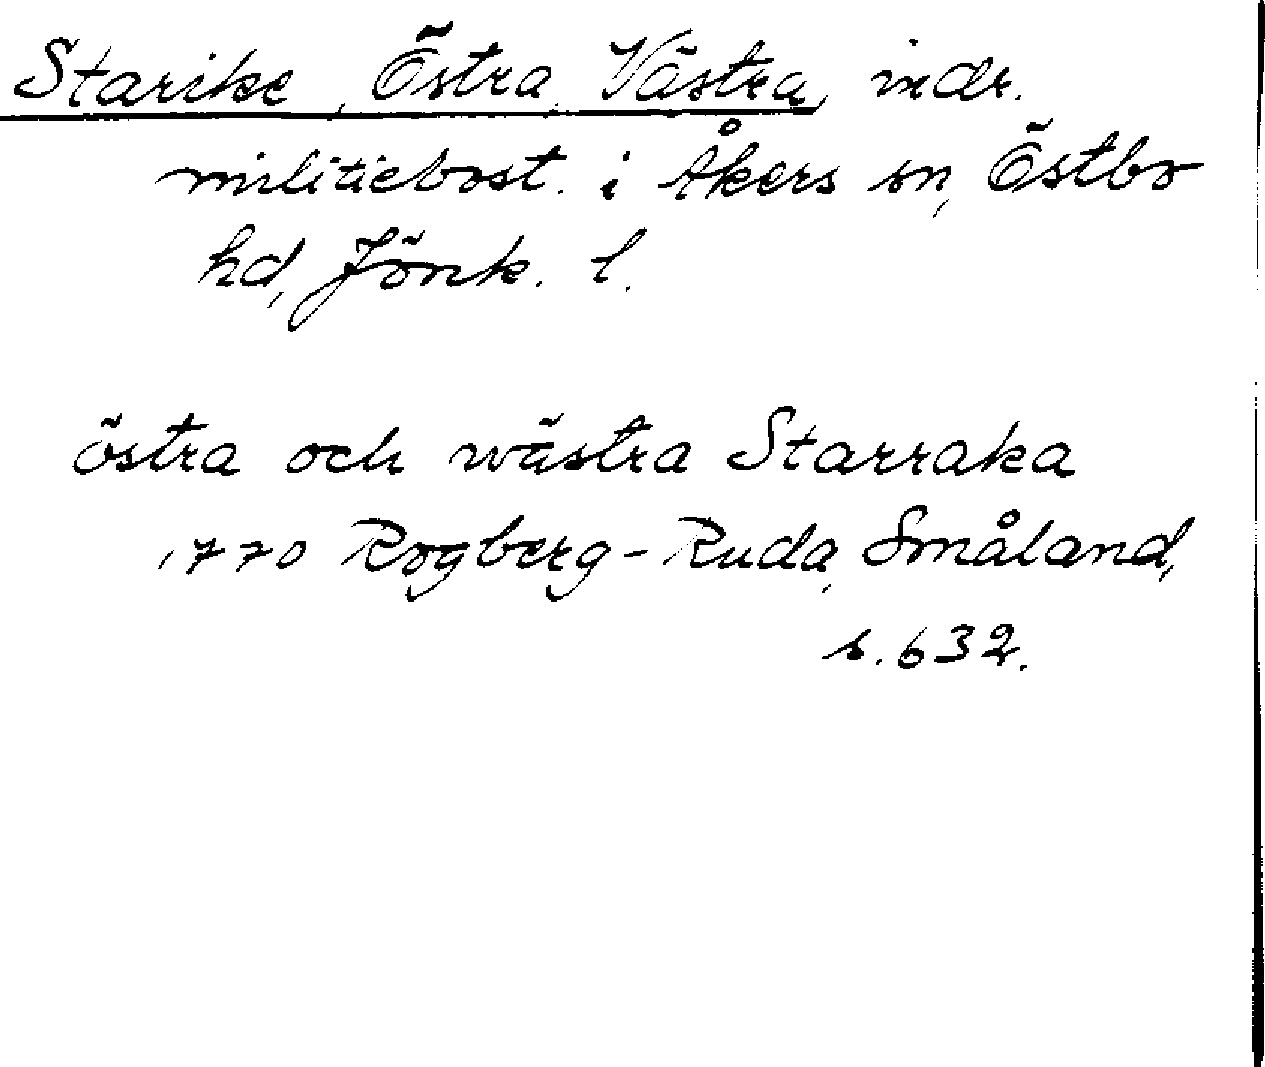 Starike, Östra, Västra, indr.
militiebost. i Åkers sn, Östbo
hd, Jönk. l.
östra och wästra Starraka
1770 Rogberg-Ruda, Småland,
s. 632.